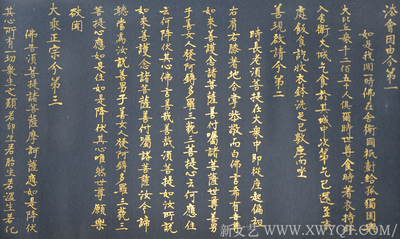 法會因由分第一
如是我聞一時佛在舍衛國祇樹給孤獨園與
大比丘眾千二百五十人俱爾時世尊食時著衣持
入舍衛大城乞食於其城中次第乞已還至本
處飯食訖收衣鉢洗足已敷座而坐
善現啟請分第二
時長老須菩提在大眾中即從座起偏袒
右肩右膝著地合掌恭敬而白佛言希有世尊
如來善護念諸菩薩善付囑諸菩薩世尊善男
子善女人發阿耨多羅三藐三菩提心云何應住
云何降伏其心佛言善哉善哉須菩提如汝所說
如來善護念諸菩薩善付囑諸菩薩汝今諦
聽當為汝說善男子善女人發阿耨多羅三藐三
菩提心應如是住如是降伏其心唯然世尊願樂
欲聞
大乘正宗分第三
佛告須菩提諸菩薩摩訶薩應如是降伏
其心所有一切眾生之類若卵生若胎生若濕生若化
新文艺
www.XWYQT.COM